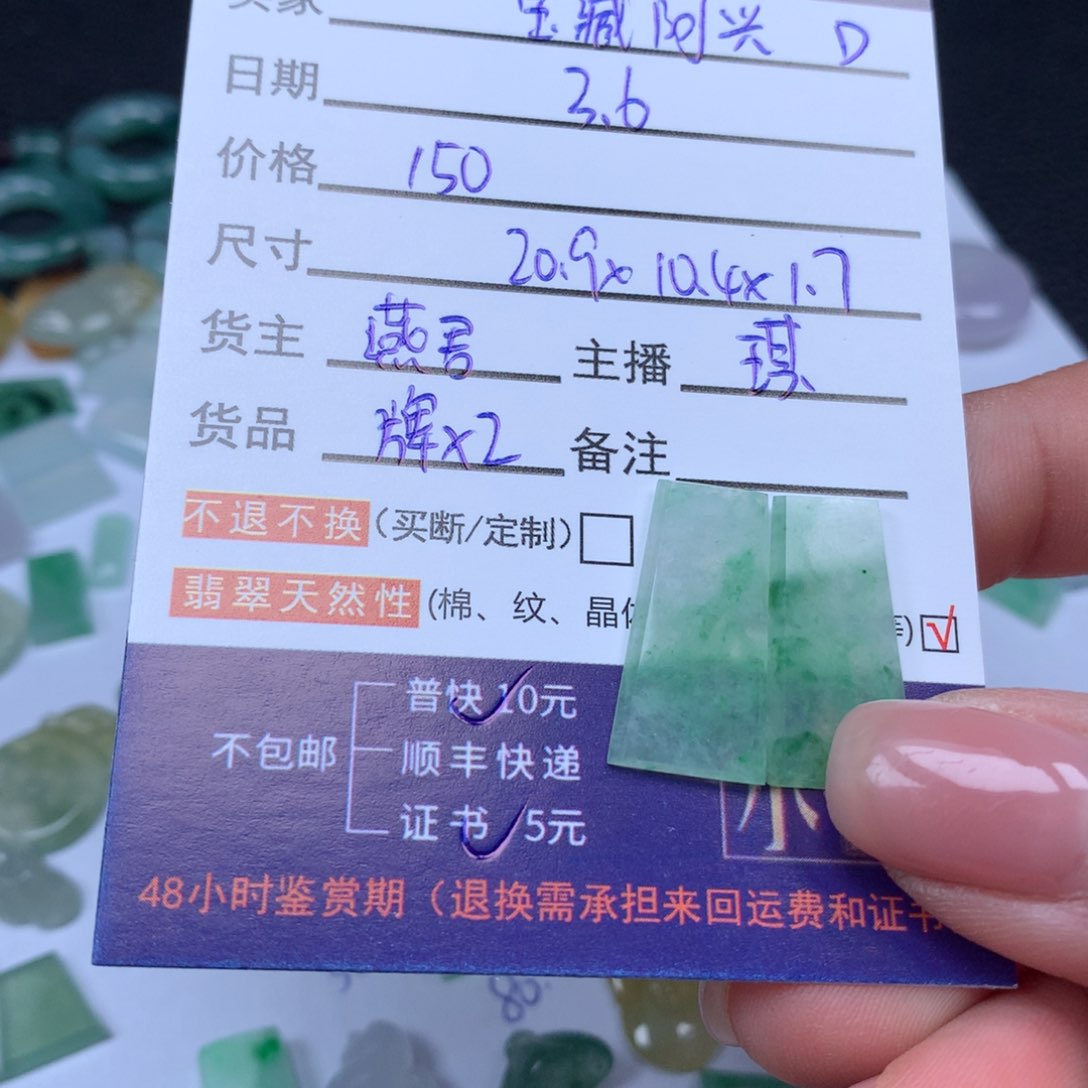 买家 宝藏阿兴 D
日期 3.6
价格 150
尺寸 20.9x10.4x1.7
货主 燕君 主播 琪
货品 牌x2 备注
不退不换(买断/定制)
翡翠天然性(棉、纹、晶体 等)√
普快 10元
不包邮 顺丰快递
证书 5元
小
48小时鉴赏期(退换需承担来回运费和证书
80